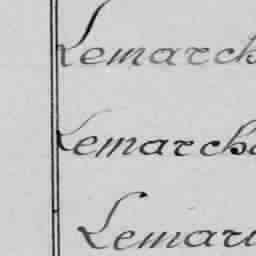 Lemarch
Lemarcha
Lemari